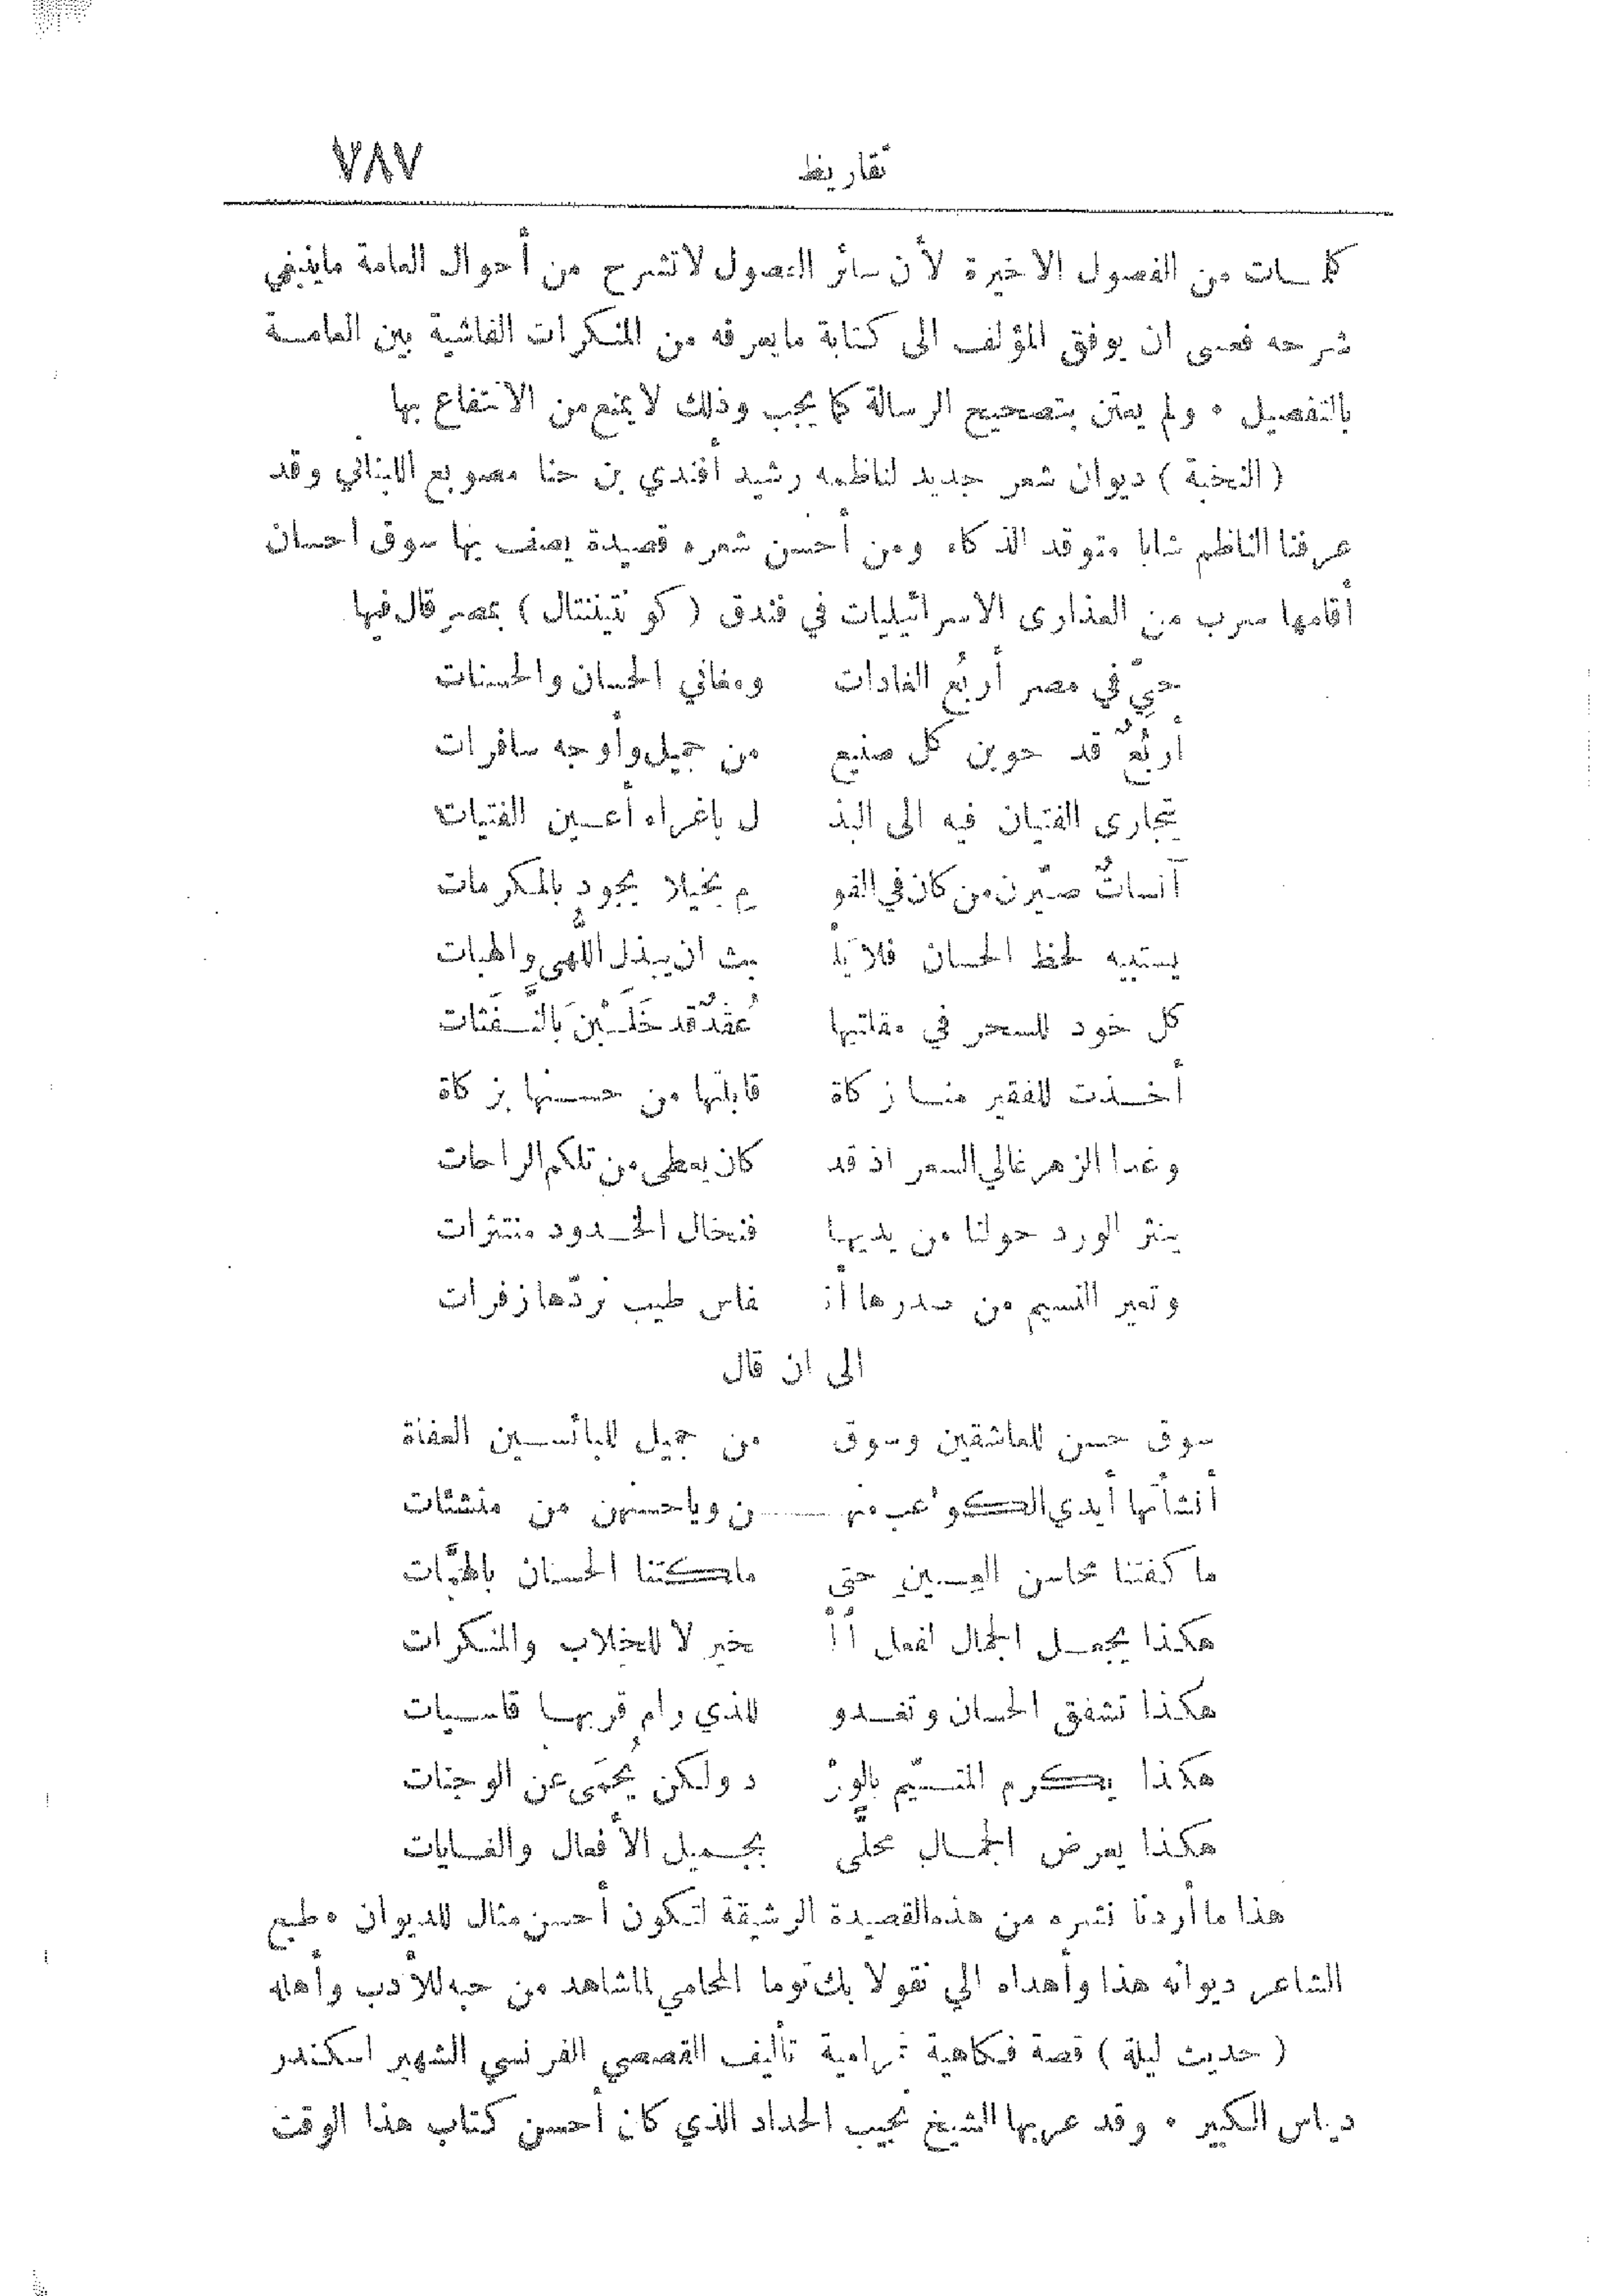 تقاريظ ٧٨٧
كلمات من الفصول الاخيرة لأن سائر الفصول لاتشرح من أحوال العامة ماينبغي
شرحه فعسى ان يوفق المؤلف الى كتابة مايعرفه من المنكرات الفاشية بين العامة
بالتفصيل ٠ ولم يعتن بتصحيح الرسالة كما يجب وذلك لايمنع من الانتفاع بها
( النخبة ) ديوان شعر جديد لناظمه رشيد أفندي بن حنا مصوبع اللبناني وقد
عرفنا الناظم شابا متوقد الذكاء ومن أحسن شعره قصيدة يصف بها سوق احسان
أقامها سرب من العذارى الاسرائيليات في فندق ( كونتيننتال ) بمصر قال فيها
حيِّ في مصر أربُع الغادات ومغاني الحسان والحسنات
أربُعٌ قد حوين كل صنيع من جميل وأوجه سافرات
يتجارى الفتيان فيه الى البذ ل باغراء أعين الفتيات
آنساتٌ صيّرن من كان في القو م بخيلا يجود بالمكرمات
يستبيه لحظ الحسان فلا يَلْ بث ان يبذل اللُّهى والهبات
كل خود للسحر في مقلتيها عُقَدٌ قد خَلَبْنَ بالنَّفَثات
أخذت للفقير منا زكاة قابلتها من حسنها بزكاة
وغدا الزهر غالي السعر اذ قد كان يعطى من تلكم الراحات
ينثر الورد حولنا من يديها فنخال الخدود منتثرات
وتعير النسيم من صدرها أنـ ـفاس طيب نردّها زفرات
الى ان قال
سوق حسن للعاشقين وسوق من جميل للبائسين العفاة
أنشأتها أيدي الكواعب منهـ ـن وياحسنهن من منشئات
ما كفتنا محاسن العين حتى ملكتنا الحسان بالهمَّات
هكذا يجعل الجمال لفعل الْـ خير لا للخلاب والمنكرات
هكذا تشفق الحسان وتغدو للذي رام قربها قاسيات
هكذا يكرم المتيّم بالورْ د ولكن يُحمَى عن الوجنات
هكذا يعرض الجمال محلَّى بجميل الأفعال والغايات
هذا ما أردنا نشره من هذه القصيدة الرشيقة لتكون أحسن مثال للديوان ٠ طبع
الشاعر ديوانه هذا وأهداه الي نقولا بك توما المحامي لماشاهد من حبه للأدب وأهله
( حديث ليلة ) قصة فكاهية غرامية تأليف القصصي الفرنسي الشهير اسكندر
دياس الكبير ٠ وقد عربها الشيخ نجيب الحداد الذي كان أحسن كتاب هذا الوقت